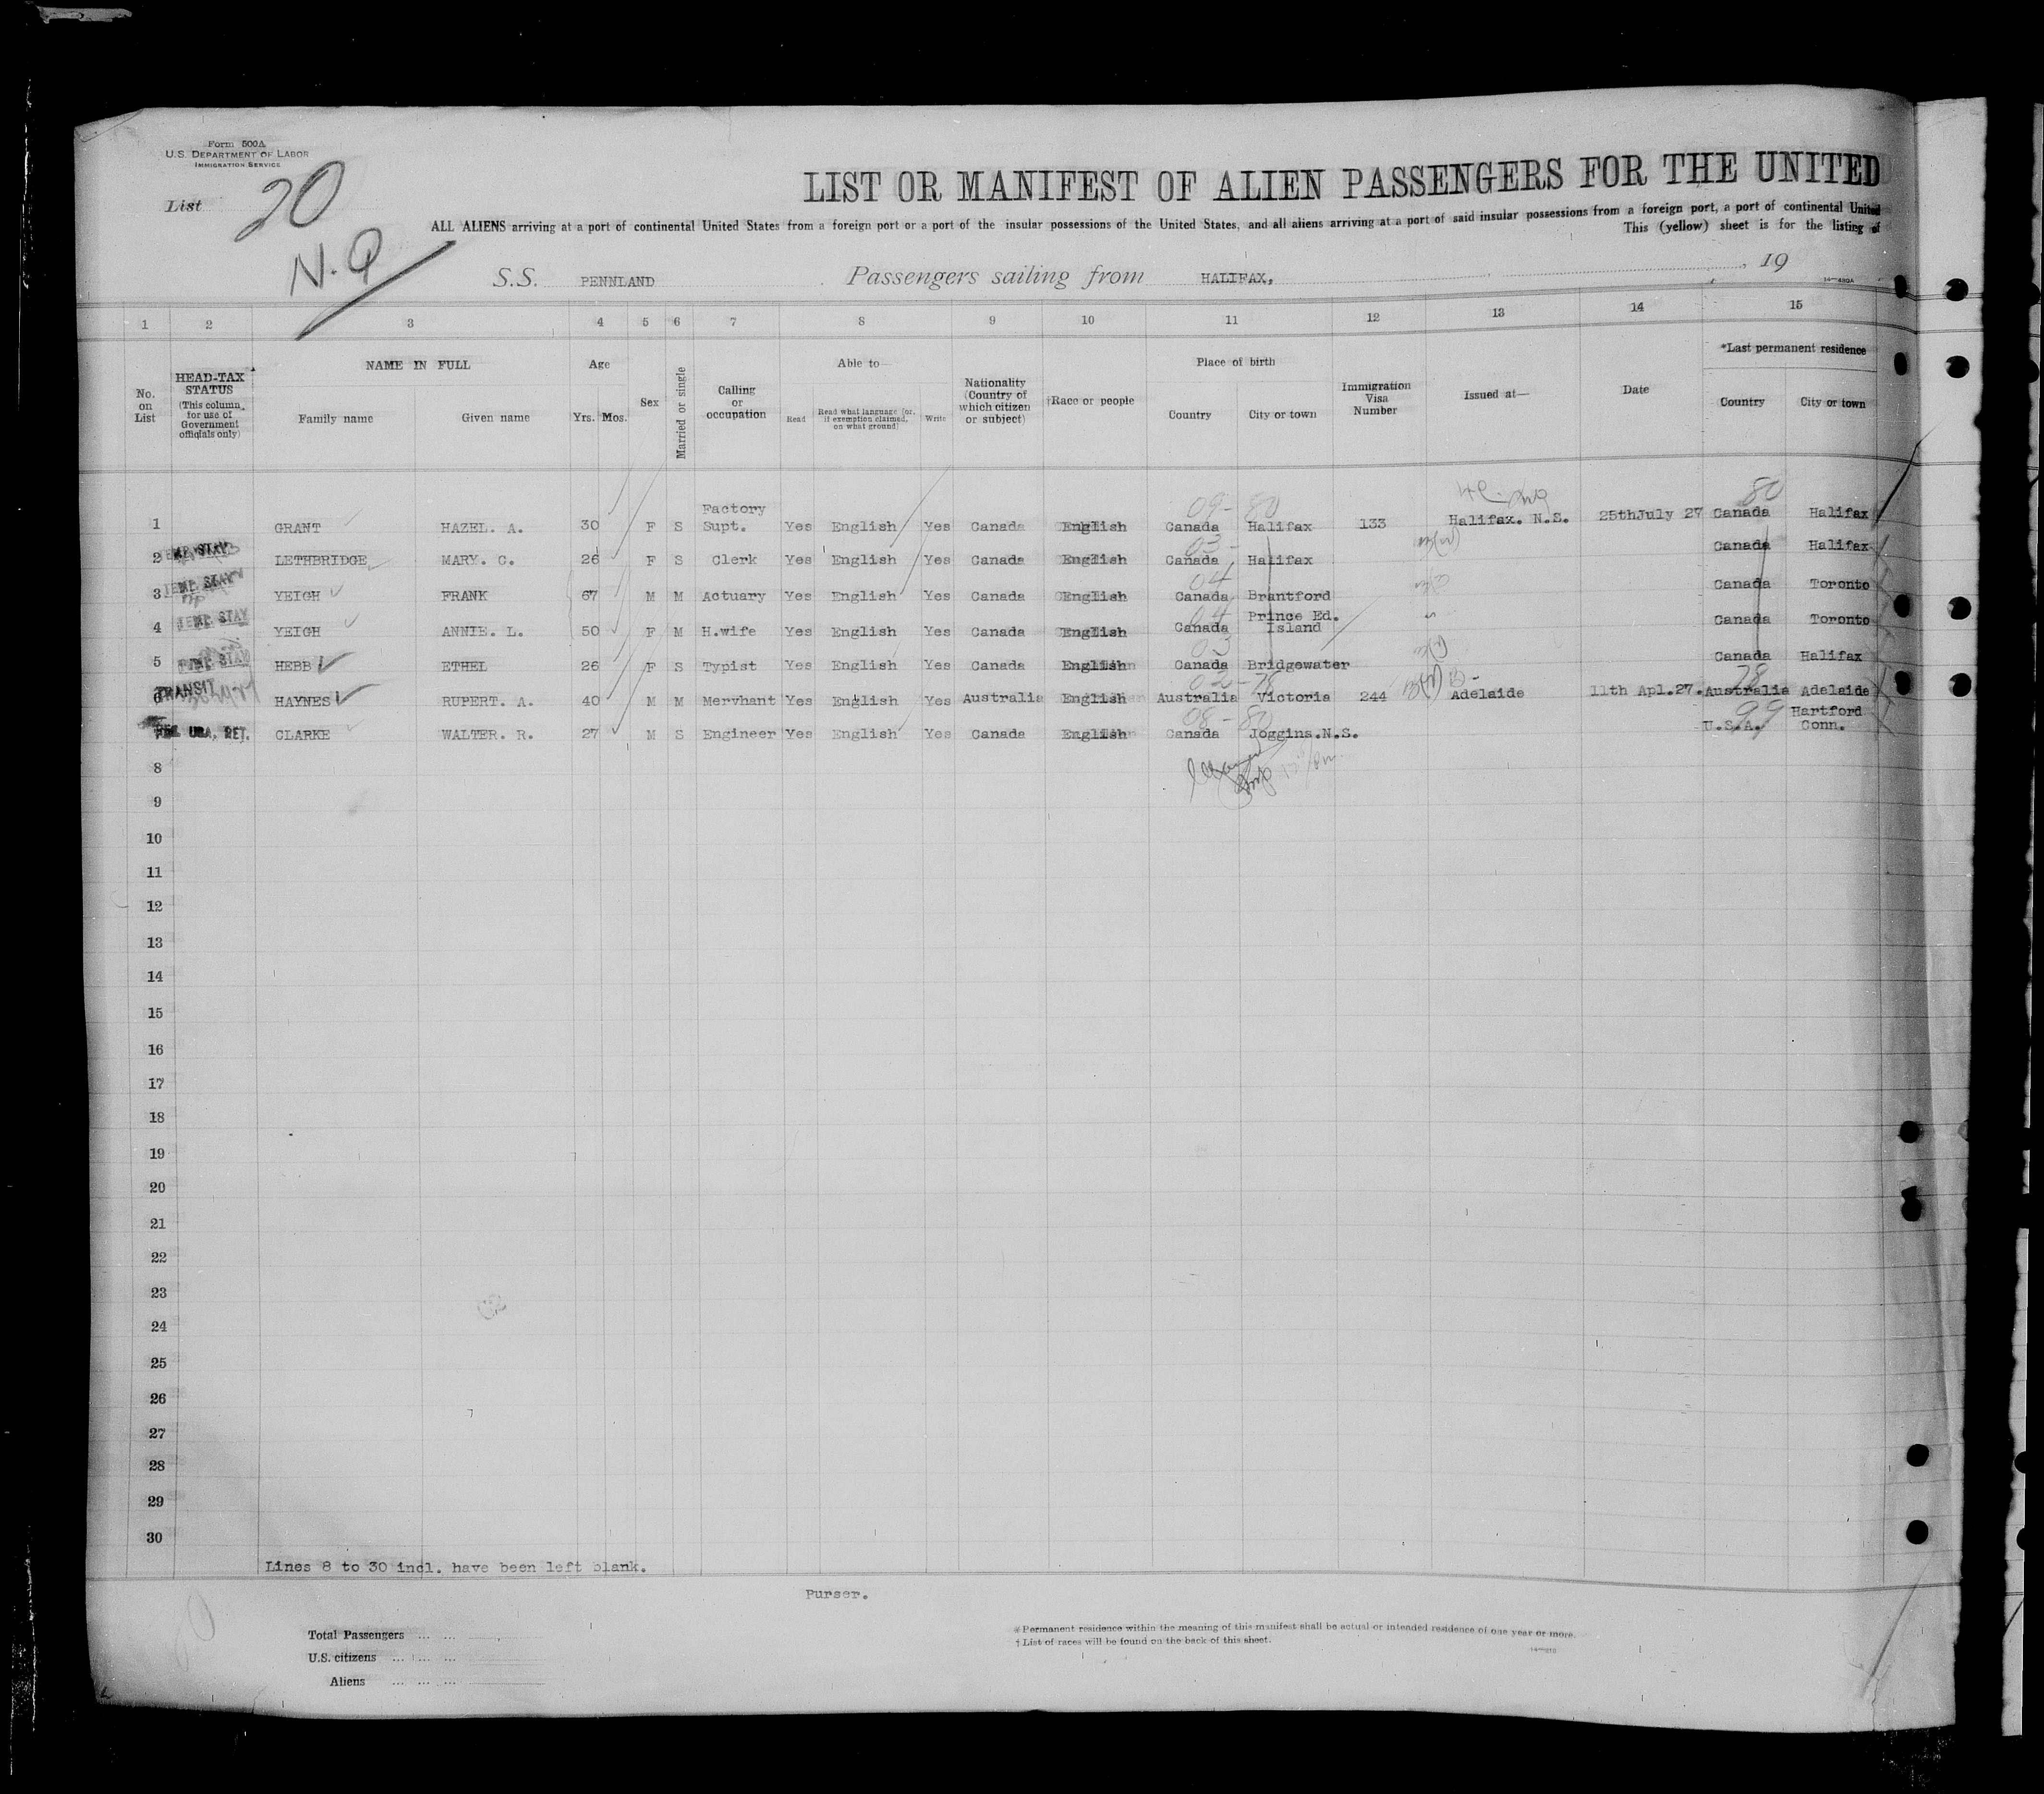 Form 500A
U.S. DEPARTMENT OF LABOR
IMMIGRATION SERVICE
List 20
N.Q
LIST OR MANIFEST OF ALIEN PASSENGERS FOR THE UNITED
ALL ALIENS arriving at a port of continental United States from a foreign port or a port of the insular possessions of the United States, and all aliens arriving at a port of said insular possessions from a foreign port, a port of continental United
This (yellow) sheet is for the listing of
S.S. PENNLAND Passengers sailing from HALIFAX, , 19
1 2 3 4 5 6 7 8 9 10 11 12 13 14 15
No. on List
HEAD-TAX STATUS
(This column for use of Government officials only)
NAME IN FULL
Family name Given name
Age
Yrs. Mos.
Sex
Married or single
Calling or occupation
Able to—
Read Read what language [or, if exemption claimed, on what ground] Write
Nationality (Country of which citizen or subject)
†Race or people
Place of birth
Country City or town
Immigration Visa Number
Issued at—
Date
*Last permanent residence
Country City or town
09- 80 80
1 GRANT HAZEL. A. 30 F S Factory Supt. Yes English Yes Canada English Canada Halifax 133 Halifax. N.S. 25thJuly 27 Canada Halifax
03-
2 TEMP. STAY LETHBRIDGE MARY. C. 26 F S Clerk Yes English Yes Canada English Canada Halifax Canada Halifax
04
3 TEMP. STAY YEIGH FRANK 67 M M Actuary Yes English Yes Canada English Canada Brantford Canada Toronto
04
4 TEMP. STAY YEIGH ANNIE. L. 50 F M H.wife Yes English Yes Canada English Canada Prince Ed. Island Canada Toronto
03
5 TEMP. STAY HEBB ETHEL 26 F S Typist Yes English Yes Canada English Canada Bridgewater Canada Halifax
02-78 78
6 TRANSIT HAYNES RUPERT. A. 40 M M Mervhant Yes English Yes Australia English Australia Victoria 244 Adelaide 11th Apl.27. Australia Adelaide
08-80 99
USA, RET. CLARKE WALTER. R. 27 M S Engineer Yes English Yes Canada English Canada Joggins.N.S. U.S.A. Hartford Conn.
8
9
10
11
12
13
14
15
16
17
18
19
20
21
22
23
24
25
26
27
28
29
30
Lines 8 to 30 incl. have been left blank.
Purser.
Total Passengers
U.S. citizens
Aliens
* Permanent residence within the meaning of this manifest shall be actual or intended residence of one year or more.
† List of races will be found on the back of this sheet.